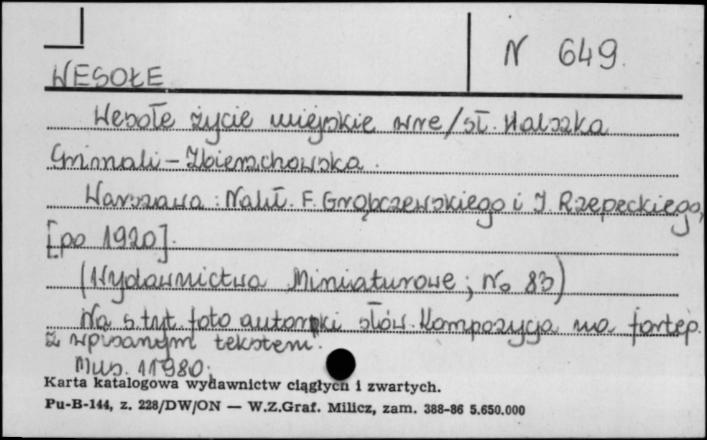 N 649.
WESOŁE
Wesołe życie wiejskie wre / sł. Halszka
Grimali-Zbierzchowska.
Warszawa: Nakł. F. Grąbczewskiego i J. Rzepeckiego,
[po 1920].
(Wydawnictwo Miniaturowe; No 83)
Na s. tyt. foto autorki słów. Kompozycja na fortep.
z wpisanym tekstem.
Mus. 11980.
Karta katalogowa wydawnictw ciągłych i zwartych.
Pu-B-144, z. 228/DW/ON — W.Z.Graf. Milicz, zam. 388-86 5.650.000